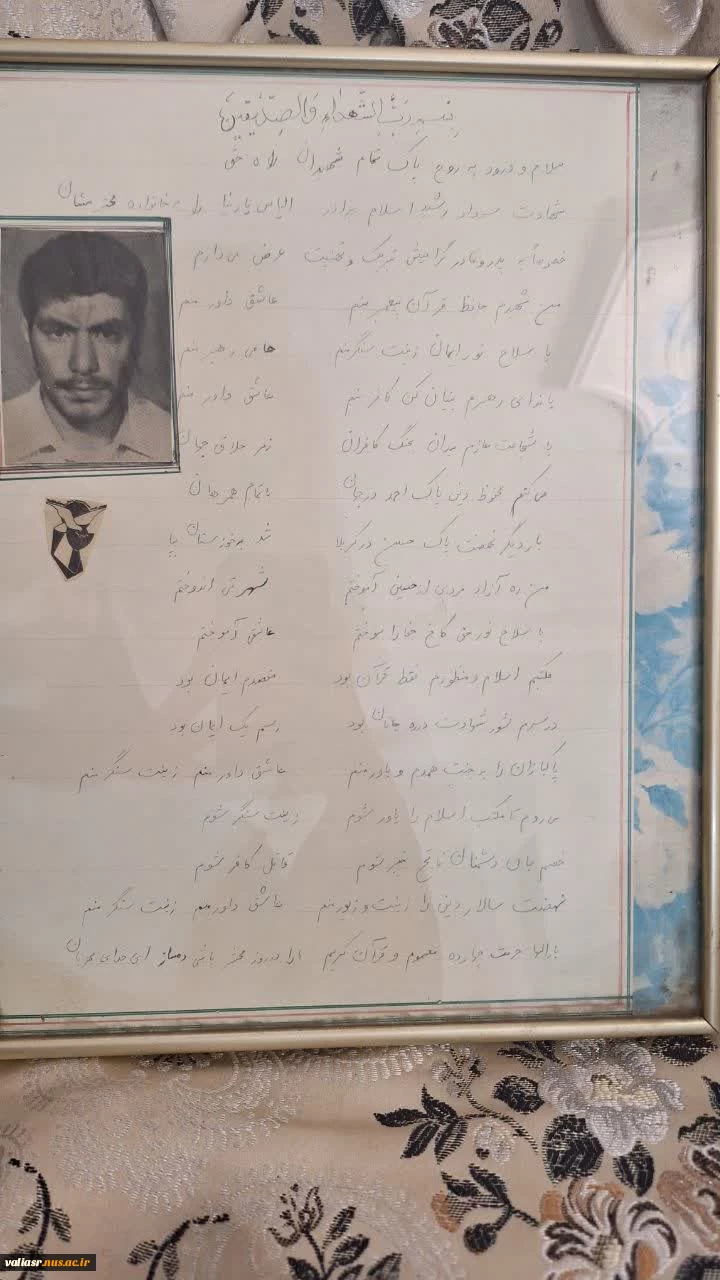 بسم رب الشهداء والصدیقین
سلام و درود به روح پاک تمام شهیدان راه حق
شهادت سردار رشید اسلام برادر الیاس پارنیا را به خانواده محترمشان
خصوصاً به پدر و مادر گرامیش تبریک و تهنیت عرض می دارم
من شهیدم حافظ قرآن پیغمبر منم عاشق داور منم
با سلاح نور ایمان زینت سنگر منم حامی رهبر منم
با ندای رهبرم بنیان کن کافر منم عاشق داور منم
با شجاعت عازم میدان جنگ کافران
می کنم محفوظ دین پاک احمد در جهان با تمام همرهان
بار دیگر نهضت پاک حسین در کربلا شد به خوزستان بپا
من ره آزاد مردی از حسین آموختم
با سلاح نور حق کاخ جفا را سوختم عاشقی آموختم
مکتبم اسلام و منظورم فقط قرآن بود مقصدم ایمان بود
در سرم شور شهادت در ره جانان بود
پاکبازان را به جنت همدم و یاور منم عاشق داور منم زینت سنگر منم
می روم تا مکتب اسلام را یاور شوم زینت سنگر شوم
خصم جان دشمنان فاتح خیبر شوم قاتل کافر شوم
نهضت سالار دین را زینت و زیور منم عاشق داور منم زینت سنگر منم
بارالها حرمت چهارده معصوم و قرآن کریم روز محشر باشی دمساز ای خدای مهربان
valiasr.nus.ac.ir